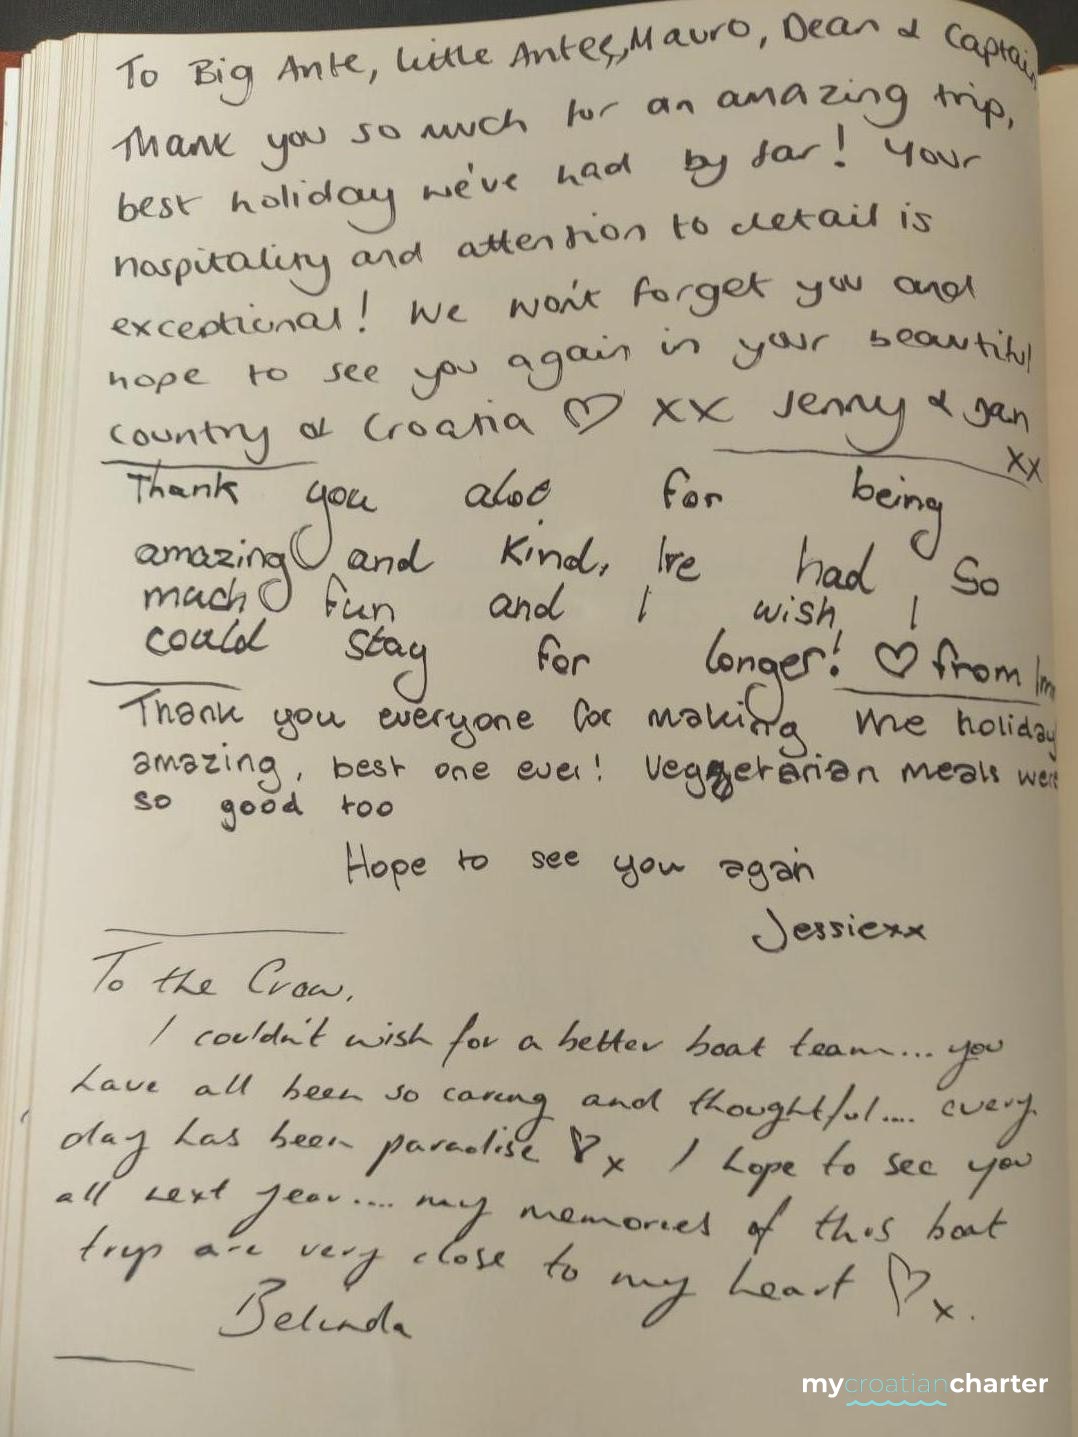 To Big Ante, little Ante, Mauro, Dean & Captain
Thank you so much for an amazing trip,
best holiday we've had by far! Your
hospitality and attention to detail is
exceptional! We won't forget you and
hope to see you again in your beautiful
country of Croatia ♡ xx Jenny & Jan
xx
Thank you also for being
amazing and kind, I've had so
much fun and I wish I
could stay for longer! ♡ from
Thank you everyone for making me holiday
amazing, best one ever! Veggetarian meals were
so good too
Hope to see you again
Jessiexx
To the Crew,
I couldn't wish for a better boat team... you
have all been so caring and thoughtful.... every
day has been paradise ♡x I hope to see you
all next year.... my memories of this boat
trip are very close to my heart ♡x.
Belinda
mycroatiancharter